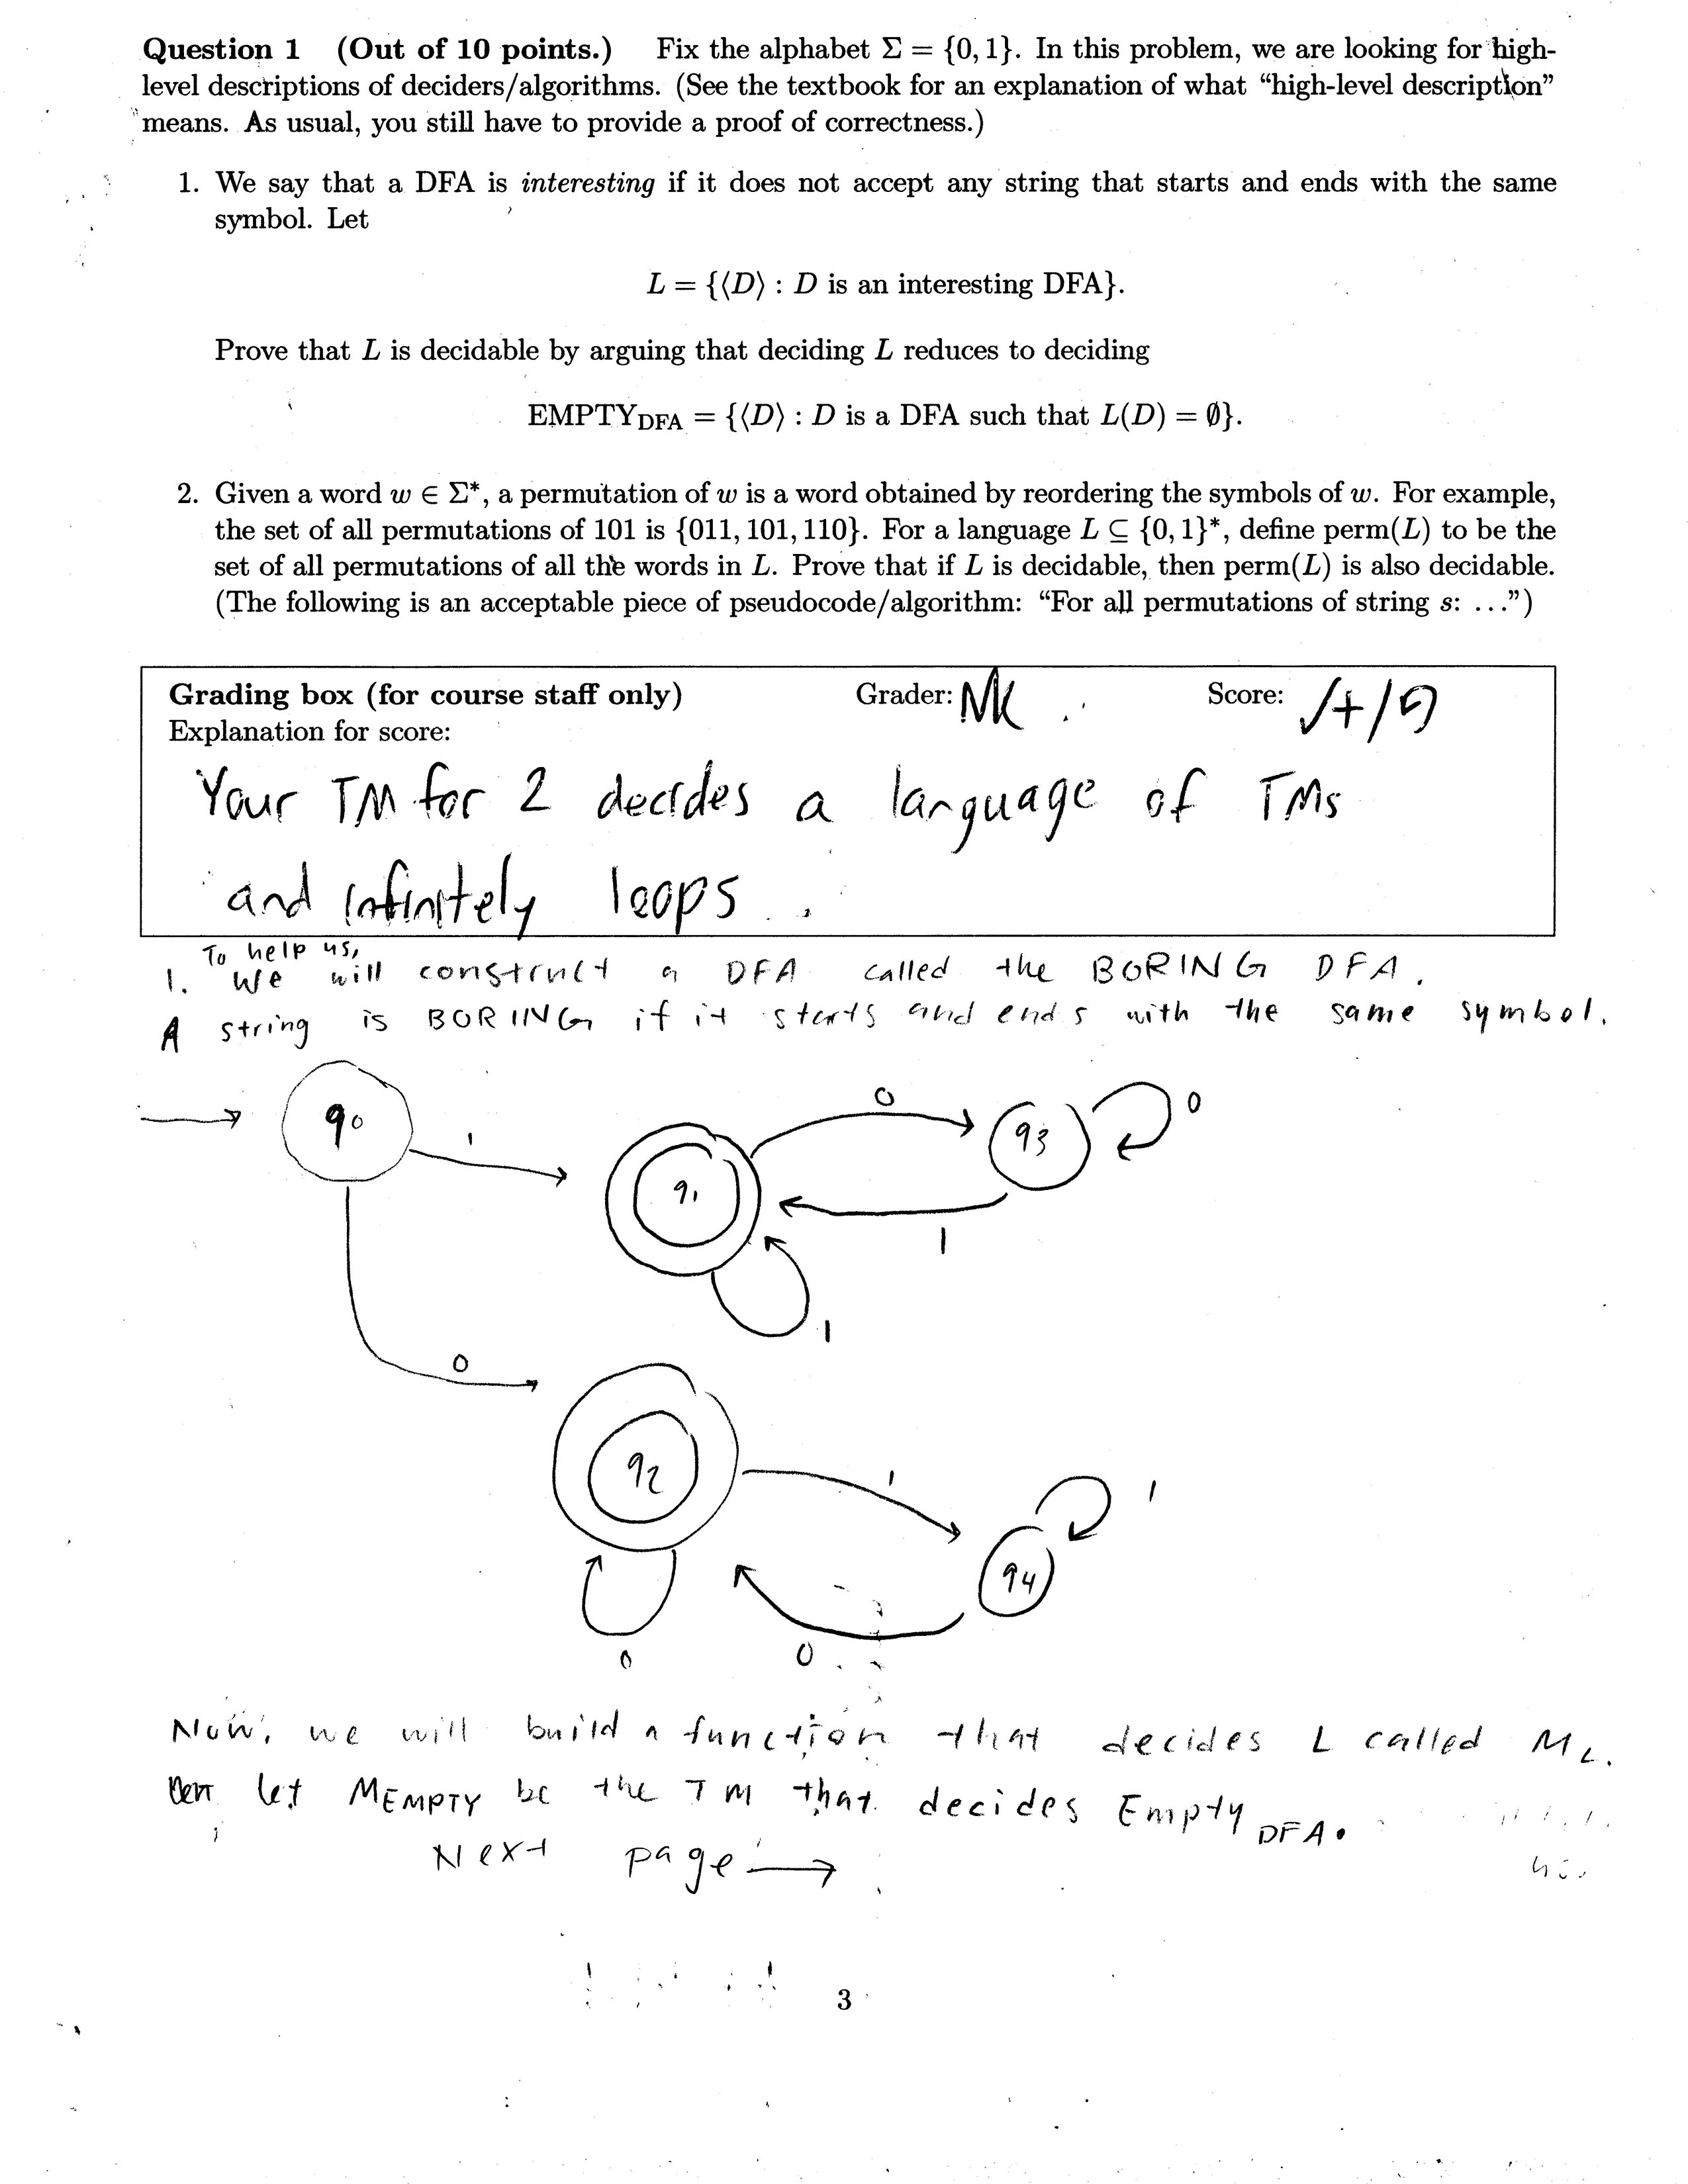 Question 1 (Out of 10 points.) Fix the alphabet Σ = {0, 1}. In this problem, we are looking for high-
level descriptions of deciders/algorithms. (See the textbook for an explanation of what “high-level description”
means. As usual, you still have to provide a proof of correctness.)
1. We say that a DFA is interesting if it does not accept any string that starts and ends with the same
symbol. Let
L = {⟨D⟩ : D is an interesting DFA}.
Prove that L is decidable by arguing that deciding L reduces to deciding
EMPTY_DFA = {⟨D⟩ : D is a DFA such that L(D) = ∅}.
2. Given a word w ∈ Σ*, a permutation of w is a word obtained by reordering the symbols of w. For example,
the set of all permutations of 101 is {011, 101, 110}. For a language L ⊆ {0, 1}*, define perm(L) to be the
set of all permutations of all the words in L. Prove that if L is decidable, then perm(L) is also decidable.
(The following is an acceptable piece of pseudocode/algorithm: “For all permutations of string s: ...”)
Grading box (for course staff only) Grader: NK Score: √+/
Explanation for score:
Your TM for 2 decides a language of TMs
and infinitely loops.
To help us,
1. We will construct a DFA called the BORING DFA.
A string is BORING if it starts and ends with the same symbol.
q0
1
q1
0
q3
0
1
1
0
q2
1
q4
1
0
0
Now, we will build a function that decides L called M_L.
let M_EMPTY be the TM that decides Empty_DFA.
Next page →
3